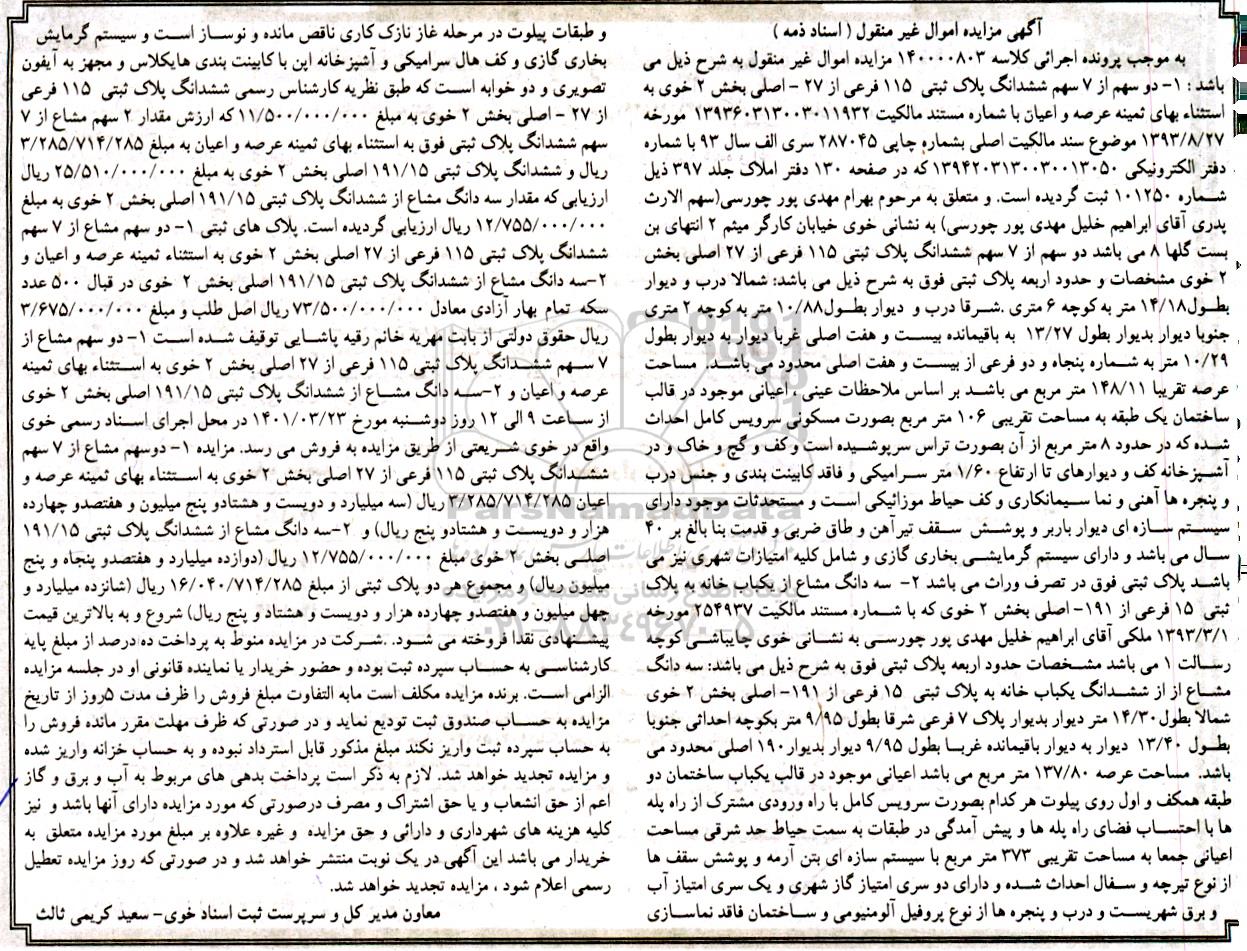 آگهی مزایده اموال غیر منقول ( اسناد ذمه )
به موجب پرونده اجرائی کلاسه ۱۴۰۰۰۰۸۰۳ مزایده اموال غیر منقول به شرح ذیل می
باشد : ۱- دو سهم از ۷ سهم ششدانگ پلاک ثبتی ۱۱۵ فرعی از ۲۷ - اصلی بخش ۲ خوی به
استثناء بهای ثمینه عرصه و اعیان با شماره مستند مالکیت ۱۳۹۳۶۰۳۱۳۰۰۳۰۱۱۹۳۲ مورخه
۱۳۹۳/۸/۲۷ موضوع سند مالکیت اصلی بشماره چاپی ۲۸۷۰۴۵ سری الف سال ۹۳ با شماره
دفتر الکترونیکی ۱۳۹۴۲۰۳۱۳۰۰۳۰۰۱۳۰۵۰ که در صفحه ۱۳۰ دفتر املاک جلد ۳۹۷ ذیل
شماره ۱۰۱۲۵۰ ثبت گردیده است. و متعلق به مرحوم بهرام مهدی پور چورسی(سهم الارث
پدری آقای ابراهیم خلیل مهدی پور چورسی) به نشانی خوی خیابان کارگر میثم ۲ انتهای بن
بست گلها ۸ می باشد دو سهم از ۷ سهم ششدانگ پلاک ثبتی ۱۱۵ فرعی از ۲۷ اصلی بخش
۲ خوی مشخصات و حدود اربعه پلاک ثبتی فوق به شرح ذیل می باشد: شمالا درب و دیوار
بطول۱۴/۱۸ متر به کوچه ۶ متری .شرقا درب و دیوار بطول۱۰/۸۸ متر به کوچه ۲ متری
جنوبا دیوار بدیوار بطول ۱۳/۲۷ به باقیمانده بیست و هفت اصلی غربا دیوار به دیوار بطول
۱۰/۲۹ متر به شماره پنجاه و دو فرعی از بیست و هفت اصلی محدود می باشد. مساحت
عرصه تقریبا ۱۴۸/۱۱ متر مربع می باشد بر اساس ملاحظات عینی ، اعیانی موجود در قالب
ساختمان یک طبقه به مساحت تقریبی ۱۰۶ متر مربع بصورت مسکونی سرویس کامل احداث
شده که در حدود ۸ متر مربع از آن بصورت تراس سرپوشیده است و کف و گچ و خاک و در
آشپزخانه کف و دیوارهای تا ارتفاع ۱/۶۰ متر سرامیکی و فاقد کابینت بندی و جنس درب
و پنجره ها آهنی و نما سیمانکاری و کف حیاط موزائیکی است و مستحدثات موجود دارای
سیستم سازه ای دیوار باربر و پوشش سقف تیرآهن و طاق ضربی و قدمت بنا بالغ بر ۴۰
سال می باشد و دارای سیستم گرمایشی بخاری گازی و شامل کلیه امتیازات شهری نیز می
باشد پلاک ثبتی فوق در تصرف وراث می باشد ۲- سه دانگ مشاع از یکباب خانه به پلاک
ثبتی ۱۵ فرعی از ۱۹۱- اصلی بخش ۲ خوی که با شماره مستند مالکیت ۲۵۴۹۳۷ مورخه
۱۳۹۳/۳/۱ ملکی آقای ابراهیم خلیل مهدی پور چورسی به نشانی خوی چایباشی کوچه
رسالت ۱ می باشد مشخصات حدود اربعه پلاک ثبتی فوق به شرح ذیل می باشد: سه دانگ
مشاع از از ششدانگ یکباب خانه به پلاک ثبتی ۱۵ فرعی از ۱۹۱- اصلی بخش ۲ خوی
شمالا بطول۱۴/۳۰ متر دیوار بدیوار پلاک ۷ فرعی شرقا بطول ۹/۹۵ متر بکوچه احداثی جنوبا
بطول ۱۳/۴۰ دیوار به دیوار باقیمانده غربا بطول ۹/۹۵ دیوار بدیوار۱۹۰ اصلی محدود می
باشد. مساحت عرصه ۱۳۷/۸۰ متر مربع می باشد اعیانی موجود در قالب یکباب ساختمان دو
طبقه همکف و اول روی پیلوت هر کدام بصورت سرویس کامل با راه ورودی مشترک از راه پله
ها با احتساب فضای راه پله ها و پیش آمدگی در طبقات به سمت حیاط حد شرقی مساحت
اعیانی جمعا به مساحت تقریبی ۳۷۳ متر مربع با سیستم سازه ای بتن آرمه و پوشش سقف ها
از نوع تیرچه و سفال احداث شده و دارای دو سری امتیاز گاز شهری و یک سری امتیاز آب
و برق شهریست و درب و پنجره ها از نوع پروفیل آلومنیومی و ساختمان فاقد نماسازی
و طبقات پیلوت در مرحله غاز نازک کاری ناقص مانده و نوساز است و سیستم گرمایش
بخاری گازی و کف هال سرامیکی و آشپزخانه اپن با کابینت بندی هایکلاس و مجهز به آیفون
تصویری و دو خوابه است که طبق نظریه کارشناس رسمی ششدانگ پلاک ثبتی ۱۱۵ فرعی
از ۲۷ - اصلی بخش ۲ خوی به مبلغ ۱۱/۵۰۰/۰۰۰/۰۰۰ که ارزش مقدار ۲ سهم مشاع از ۷
سهم ششدانگ پلاک ثبتی فوق به استثناء بهای ثمینه عرصه و اعیان به مبلغ ۳/۲۸۵/۷۱۴/۲۸۵
ریال و ششدانگ پلاک ثبتی ۱۹۱/۱۵ اصلی بخش ۲ خوی به مبلغ ۲۵/۵۱۰/۰۰۰/۰۰۰ ریال
ارزیابی که مقدار سه دانگ مشاع از ششدانگ پلاک ثبتی ۱۹۱/۱۵ اصلی بخش ۲ خوی به مبلغ
۱۲/۷۵۵/۰۰۰/۰۰۰ ریال ارزیابی گردیده است. پلاک های ثبتی ۱- دو سهم مشاع از ۷ سهم
ششدانگ پلاک ثبتی ۱۱۵ فرعی از ۲۷ اصلی بخش ۲ خوی به استثناء ثمینه عرصه و اعیان و
۲-سه دانگ مشاع از ششدانگ پلاک ثبتی ۱۹۱/۱۵ اصلی بخش ۲ خوی در قبال ۵۰۰ عدد
سکه تمام بهار آزادی معادل ۷۳/۵۰۰/۰۰۰/۰۰۰ ریال اصل طلب و مبلغ ۳/۶۷۵/۰۰۰/۰۰۰
ریال حقوق دولتی از بابت مهریه خانم رقیه پاشایی توقیف شده است ۱- دو سهم مشاع از
۷ سهم ششدانگ پلاک ثبتی ۱۱۵ فرعی از ۲۷ اصلی بخش ۲ خوی به استثناء بهای ثمینه
عرصه و اعیان و ۲-سه دانگ مشاع از ششدانگ پلاک ثبتی ۱۹۱/۱۵ اصلی بخش ۲ خوی
از ساعت ۹ الی ۱۲ روز دوشنبه مورخ ۱۴۰۱/۰۳/۲۳ در محل اجرای اسناد رسمی خوی
واقع در خوی شریعتی از طریق مزایده به فروش می رسد. مزایده ۱- دوسهم مشاع از ۷ سهم
ششدانگ پلاک ثبتی ۱۱۵ فرعی از ۲۷ اصلی بخش ۲ خوی به استثناء بهای ثمینه عرصه و
اعیان ۳/۲۸۵/۷۱۴/۲۸۵ ریال (سه میلیارد و دویست و هشتادو پنج میلیون و هفتصدو چهارده
هزار و دویست و هشتادو پنج ریال) و ۲-سه دانگ مشاع از ششدانگ پلاک ثبتی ۱۹۱/۱۵
اصلی بخش ۲ خوی مبلغ ۱۲/۷۵۵/۰۰۰/۰۰۰ ریال (دوازده میلیارد و هفتصدو پنجاه و پنج
میلیون ریال) و مجموع هر دو پلاک ثبتی از مبلغ ۱۶/۰۴۰/۷۱۴/۲۸۵ ریال (شانزده میلیارد و
چهل میلیون و هفتصدو چهارده هزار و دویست و هشتاد و پنج ریال) شروع و به بالاترین قیمت
پیشنهادی نقدا فروخته می شود. .شرکت در مزایده منوط به پرداخت ده درصد از مبلغ پایه
کارشناسی به حساب سپرده ثبت بوده و حضور خریدار یا نماینده قانونی او در جلسه مزایده
الزامی است. برنده مزایده مکلف است مابه التفاوت مبلغ فروش را ظرف مدت ۵روز از تاریخ
مزایده به حساب صندوق ثبت تودیع نماید و در صورتی که ظرف مهلت مقرر مانده فروش را
به حساب سپرده ثبت واریز نکند مبلغ مذکور قابل استرداد نبوده و به حساب خزانه واریز شده
و مزایده تجدید خواهد شد. لازم به ذکر است پرداخت بدهی های مربوط به آب و برق و گاز
اعم از حق انشعاب و یا حق اشتراک و مصرف درصورتی که مورد مزایده دارای آنها باشد و نیز
کلیه هزینه های شهرداری و دارائی و حق مزایده و غیره علاوه بر مبلغ مورد مزایده متعلق به
خریدار می باشد این آگهی در یک نوبت منتشر خواهد شد و در صورتی که روز مزایده تعطیل
رسمی اعلام شود ، مزایده تجدید خواهد شد.
معاون مدیر کل و سرپرست ثبت اسناد خوی- سعید کریمی ثالث
ParsNamadData
۰۲۱-۸۸۳۴۹۶۷۰-۵